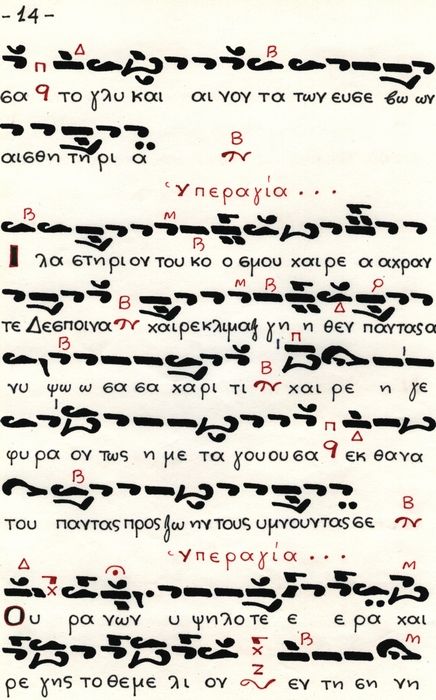 -14-
σα το γλυ και αι νον τα των ευσε βω ων
αισθη τη ρι α
Ὑπεραγία...
Ι λα στηρι ον του κο ο σμου χαι ρε α αχραν
τε Δεσποινα χαιρεκλιμαξ γη η θεν παντασα
νυ ψω ω σα σα χαρι τι χαι ρε η γε
φυ ρα ον τως η με τα γου ου σα εκ θανα
του παντας προς ζω ην τους υμνουντας σε
Ὑπεραγία...
Ου ρα νων υ ψηλο τε ε ε ρα και
ρε γης το θεμε λι ον εν τη ση νη